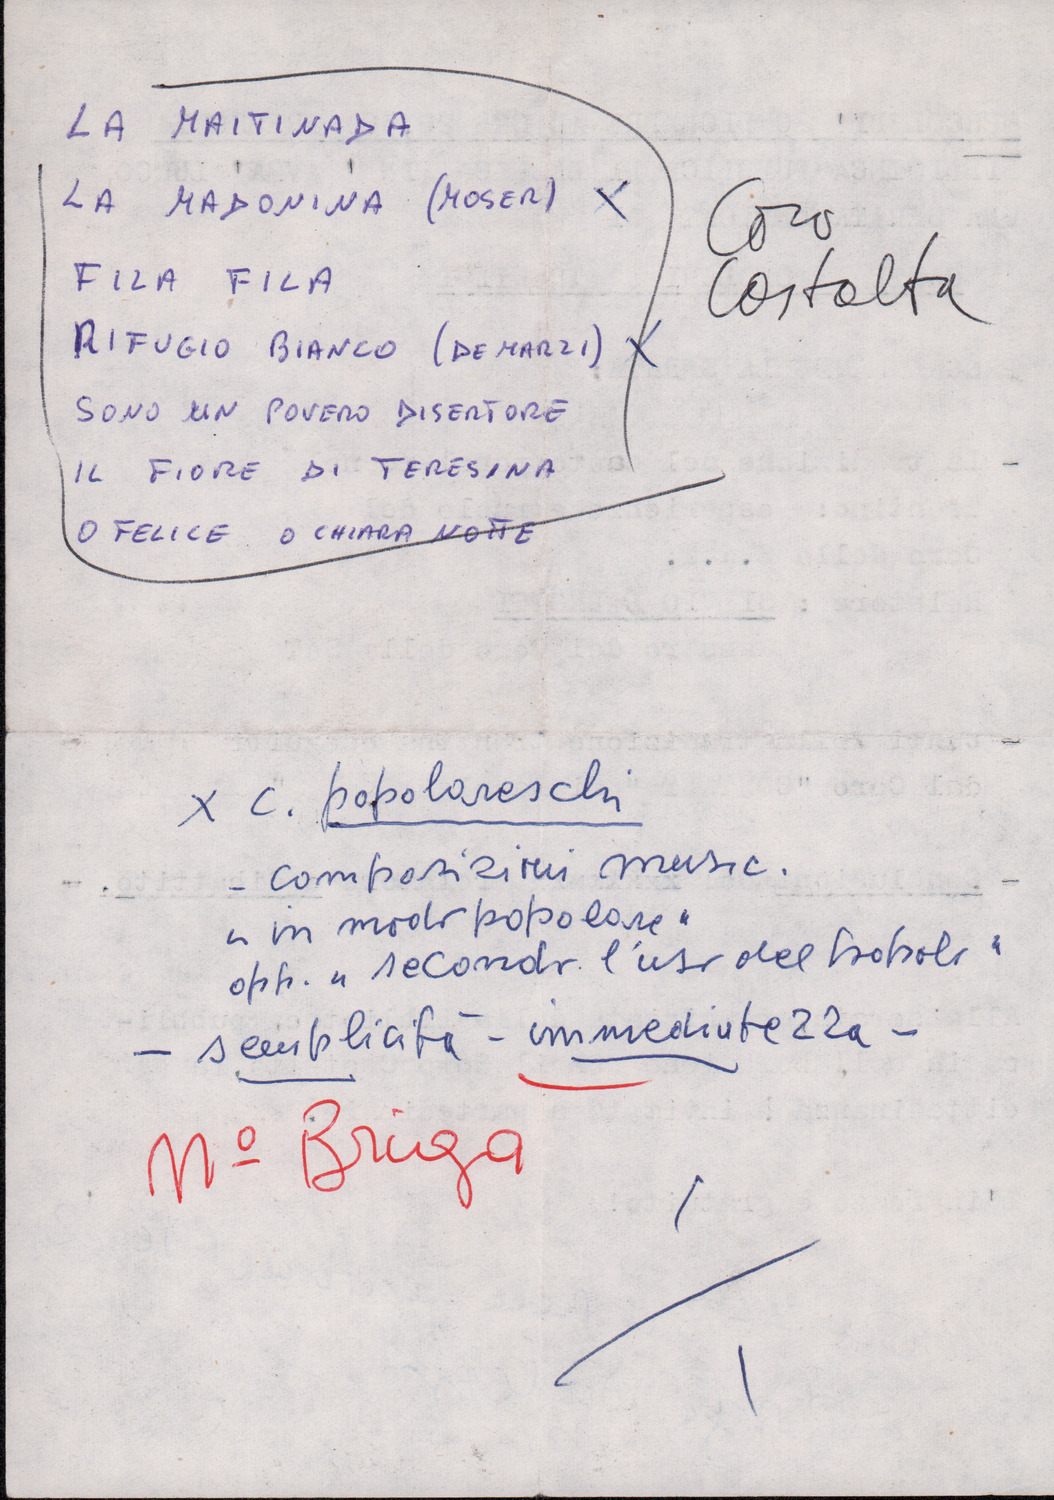 LA MAITINADA
LA MADONINA (MOSER) X
FILA FILA
RIFUGIO BIANCO (DE MARZI) X
SONO UN POVERO DISERTORE
IL FIORE DI TERESINA
O FELICE O CHIARA NOTTE
Coro
Costalta
x c. popolareschi
- composizioni music.
"in modo popolare"
opp. "secondo l'uso del popolo"
- semplicità - immediatezza -
Mº Briga